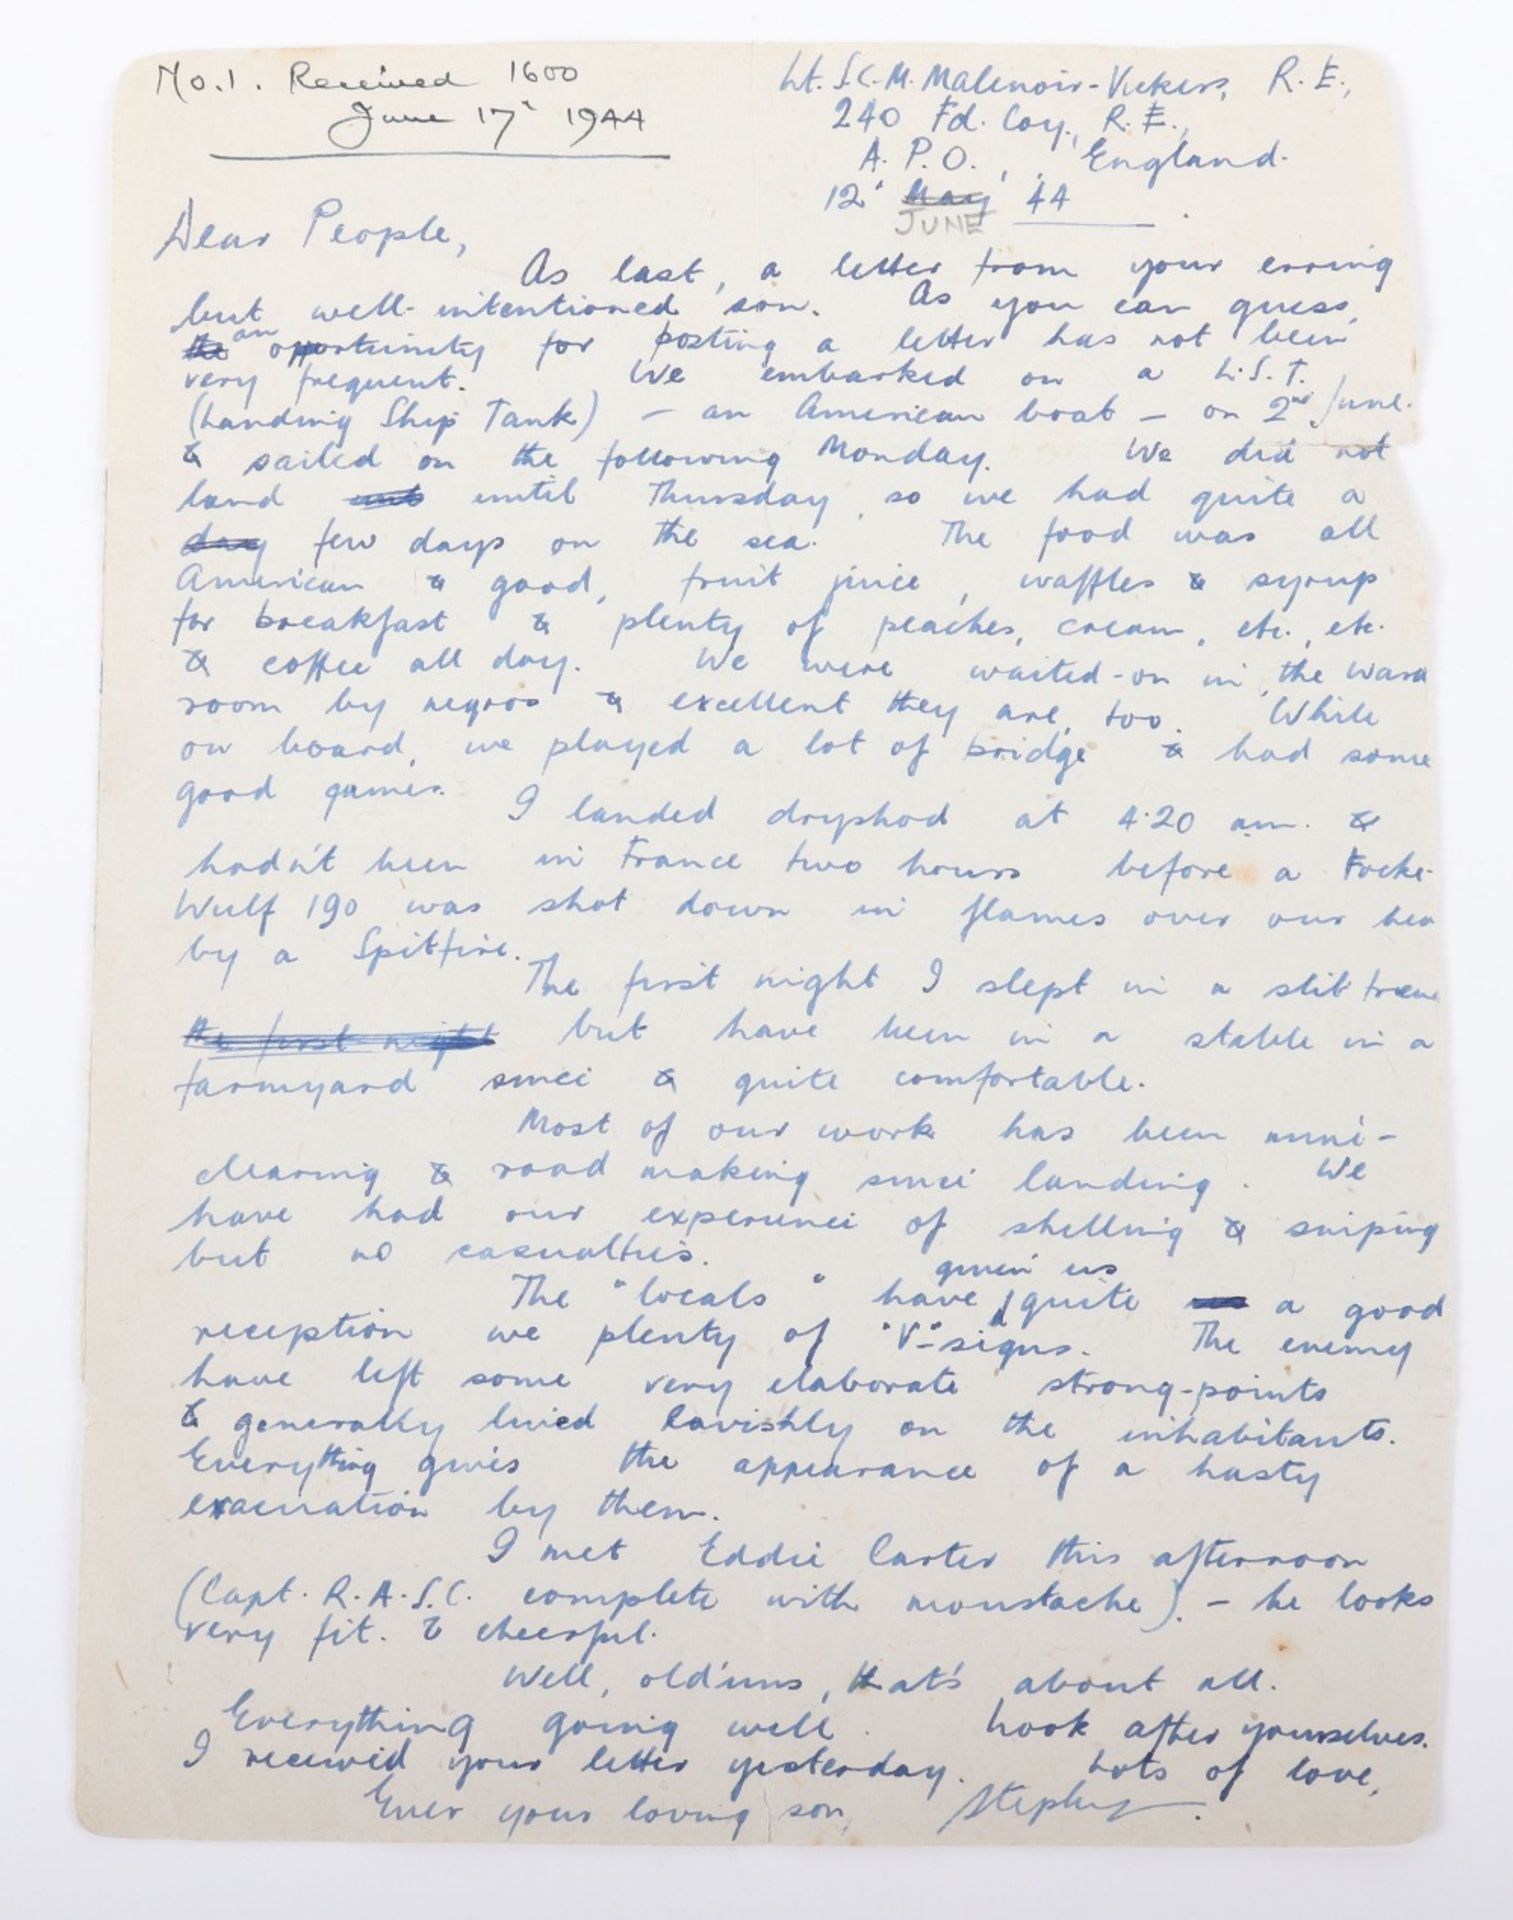 No.1. Received 1600
June 17' 1944
Lt. S.C.M. Malenoir-Vickers, R.E.,
240 Fd. Coy., R.E.,
A.P.O., England.
12' May '44
JUNE
Dear People,
As last, a letter from your erring
but well-intentioned son. As you can guess,
the an opportunity for posting a letter has not been
very frequent. We embarked on a L.S.T.
(Landing Ship Tank) - an American boat - on 2nd June.
& sailed on the following Monday. We did not
land until Thursday, so we had quite a
day few days on the sea. The food was all
American & good, fruit juice, waffles & syrup
for breakfast & plenty of peaches, cream, etc., etc.
& coffee all day. We were waited-on in the Ward
room by negros & excellent they are, too. While
on board, we played a lot of bridge & had some
good games.
I landed dryshod at 4.20 am. &
hadn't been in France two hours before a Focke-
Wulf 190 was shot down in flames over our hea
by a Spitfire.
The first night I slept in a slit tren
the first night but have been in a stable in a
farmyard since & quite comfortable.
Most of our work has been mine-
clearing & road making since landing. We
have had our experience of shelling & sniping
but no casualties.
given us
The "locals" have quite a good
reception we plenty of "V"-signs. The enemy
have left some very elaborate strong-points
& generally lived lavishly on the inhabitants.
Everything gives the appearance of a hasty
evacuation by them.
I met Eddie Carter this afternoon
(Capt. R.A.S.C. complete with moustache). - he looks
very fit. & cheerful.
Well, old'uns, that's about all.
Everything going well. Look after yourselves.
I received your letter yesterday. Lots of love,
Ever your loving son, Stephen.